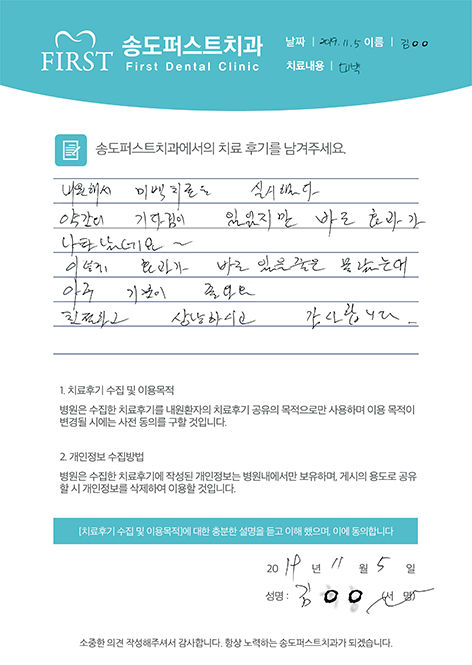 FIRST 송도퍼스트치과
First Dental Clinic
날짜 | 2019. 11. 5 이름 | 김00
치료내용 | 미백
송도퍼스트치과에서의 치료 후기를 남겨주세요.
내원해서 미백치료를 실시했다
약간의 기다림이 있었지만 바로 효과가
나타났네요 ~
이렇게 효과가 바로 있을줄은 몰랐는데
아주 기분이 좋아요
친절하고 상냥하시고 감사합니다.
1. 치료후기 수집 및 이용목적
병원은 수집한 치료후기를 내원환자의 치료후기 공유의 목적으로만 사용하며 이용 목적이
변경될 시에는 사전 동의를 구할 것입니다.
2. 개인정보 수집방법
병원은 수집한 치료후기에 작성된 개인정보는 병원내에서만 보유하며, 게시의 용도로 공유
할 시 개인정보를 삭제하여 이용할 것입니다.
[치료후기 수집 및 이용목적]에 대한 충분한 설명을 듣고 이해 했으며, 이에 동의합니다
2019 년 11 월 5 일
성명 : 김 0 0 (서 명)
소중한 의견 작성해주셔서 감사합니다. 항상 노력하는 송도퍼스트치과가 되겠습니다.